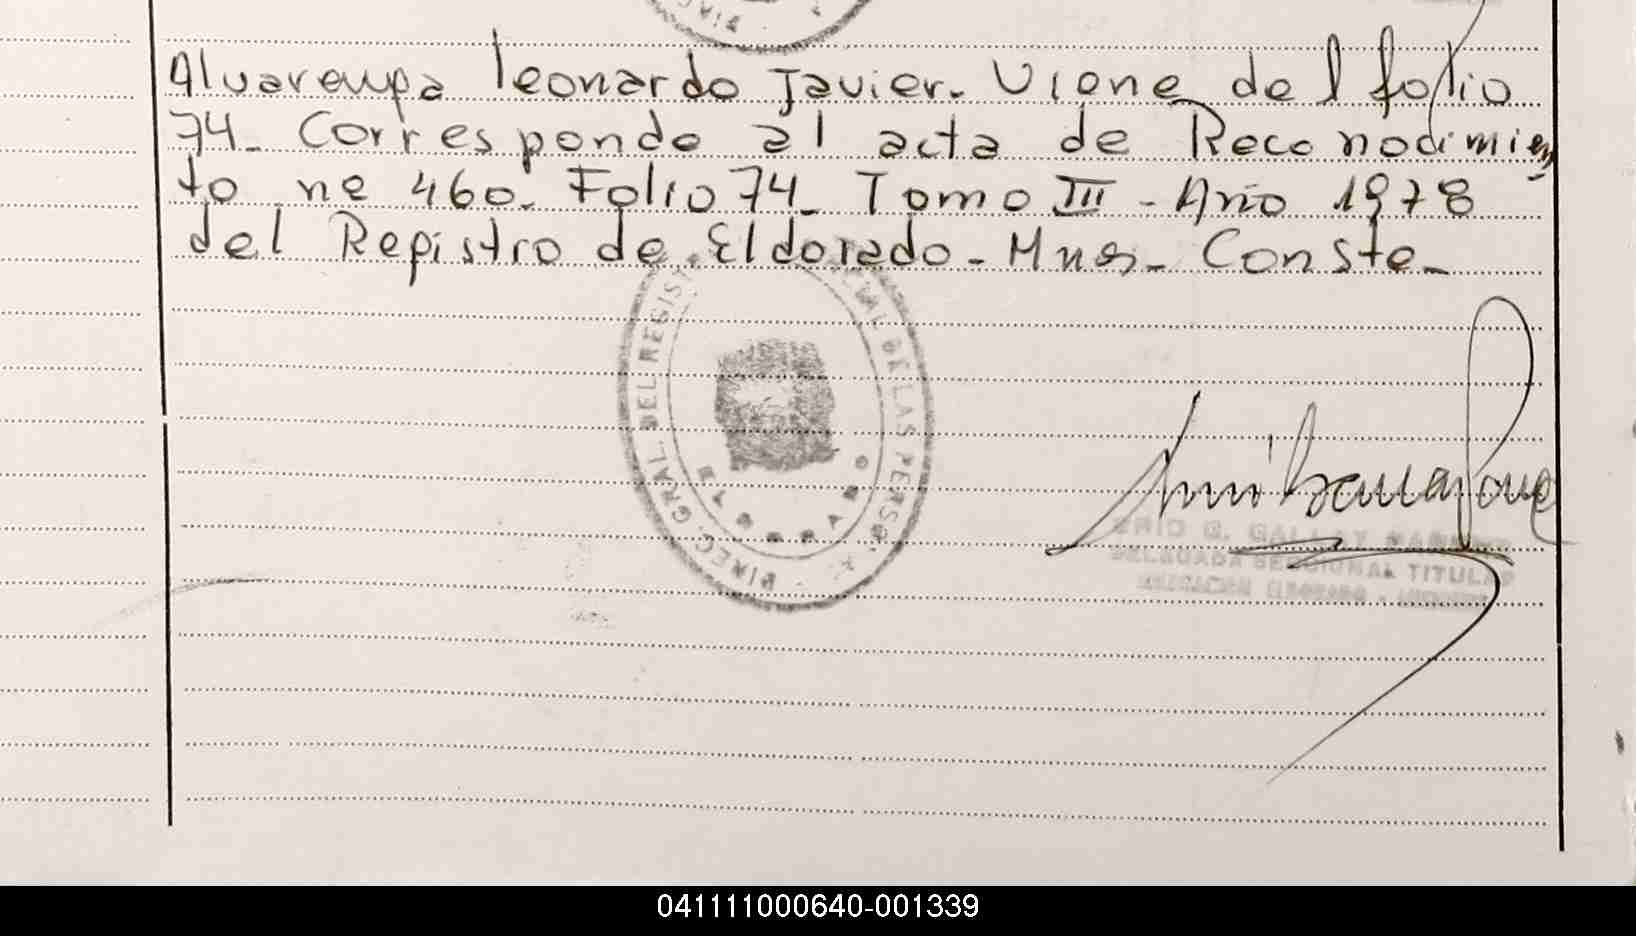 Alvarenga Leonardo Javier. Viene del folio
74. Corresponde al acta de Reconocimien
to nº 460. Folio 74. Tomo III - Año 1978
del Registro de Eldorado - Mnes. Conste.
DIREC. GRAL. DEL REGIST DE LAS PERSO
G. GALLAY
DELEGADA SECCIONAL TITULAR
041111000640-001339